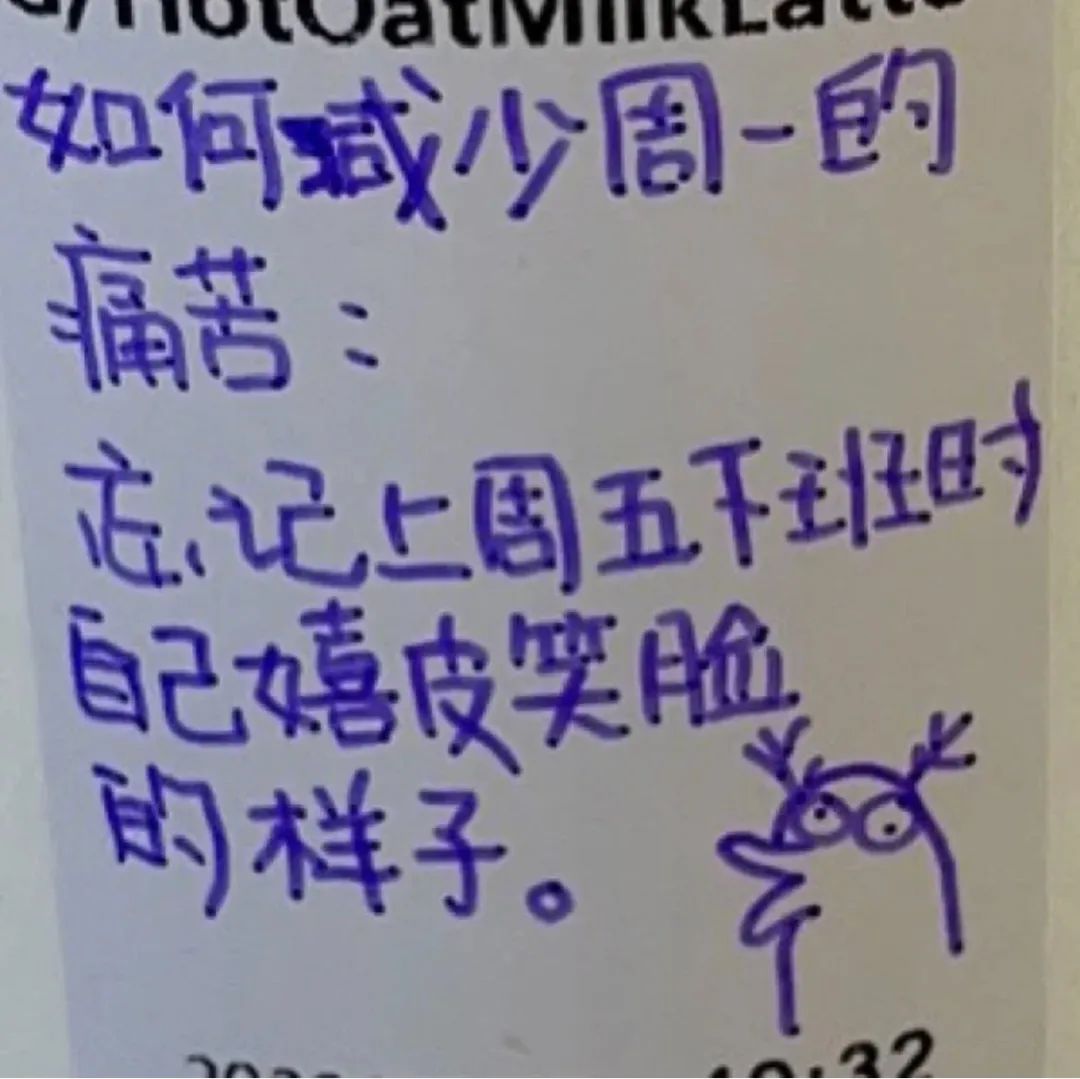 HotOatMilkLatte
如何减少周一的
痛苦：
忘记上周五下班时
自己嬉皮笑脸
的样子。
:32